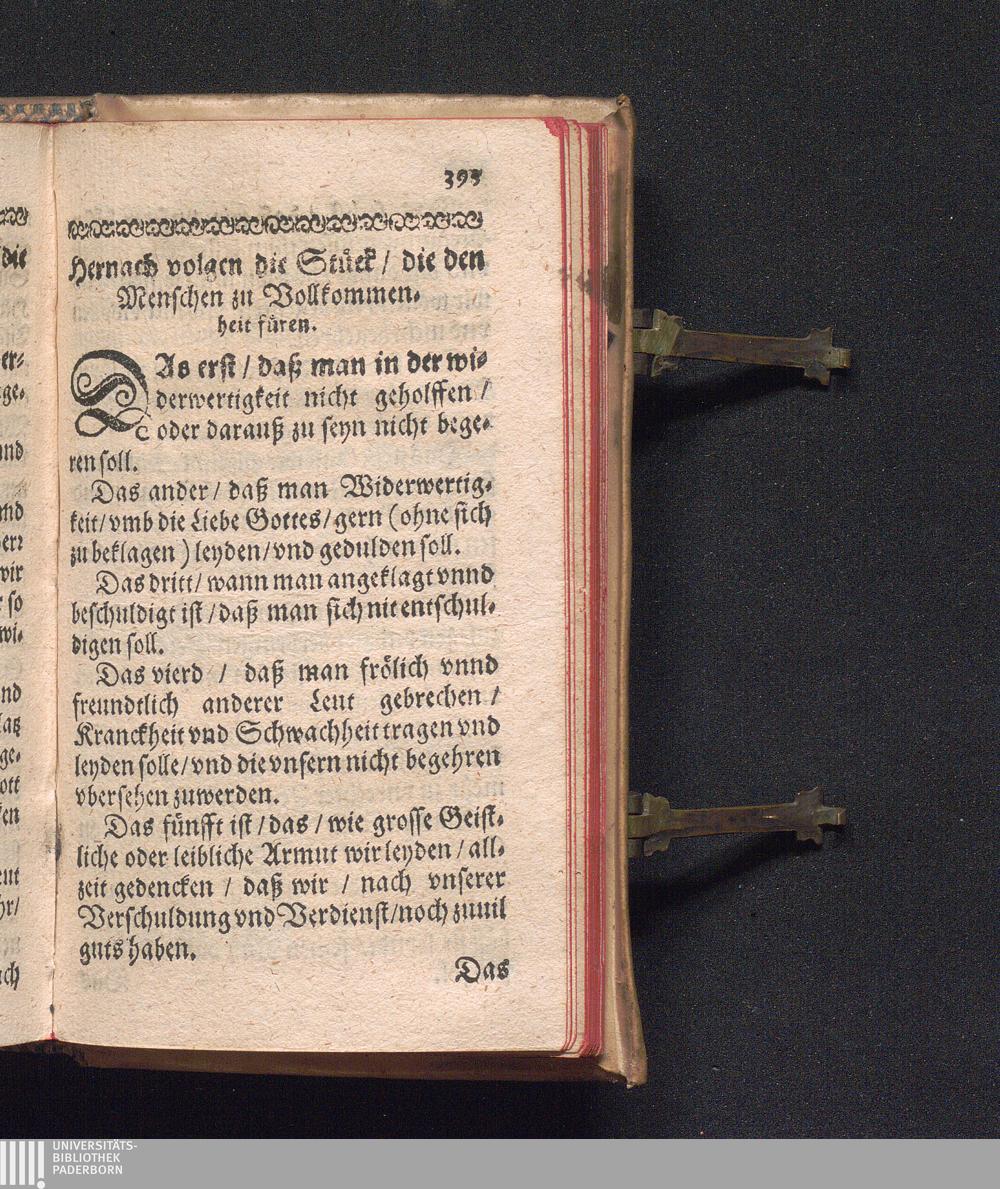 393
Hernach volgen die Stück / die den
Menschen zu Vollkommen-
heit füren.
DAs erst / daß man in der wi-
derwertigkeit nicht geholffen /
oder darauß zu seyn nicht bege-
ren soll.
Das ander / daß man Widerwertig-
keit / vmb die Liebe Gottes / gern (ohne sich
zu beklagen) leyden / vnd gedulden soll.
Das dritt / wann man angeklagt vnnd
beschuldigt ist / daß man sich nit entschul-
digen soll.
Das vierd / daß man frölich vnnd
freundtlich anderer Leut gebrechen /
Kranckheit vnd Schwachheit tragen vnd
leyden solle / vnd die vnsern nicht begehren
vbersehen zuwerden.
Das fünfft ist / das / wie grosse Geist-
liche oder leibliche Armut wir leyden / all-
zeit gedencken / daß wir / nach vnserer
Verschuldung vnd Verdienst / noch zuuil
guts haben.
Das
UNIVERSITÄTS-
BIBLIOTHEK
PADERBORN